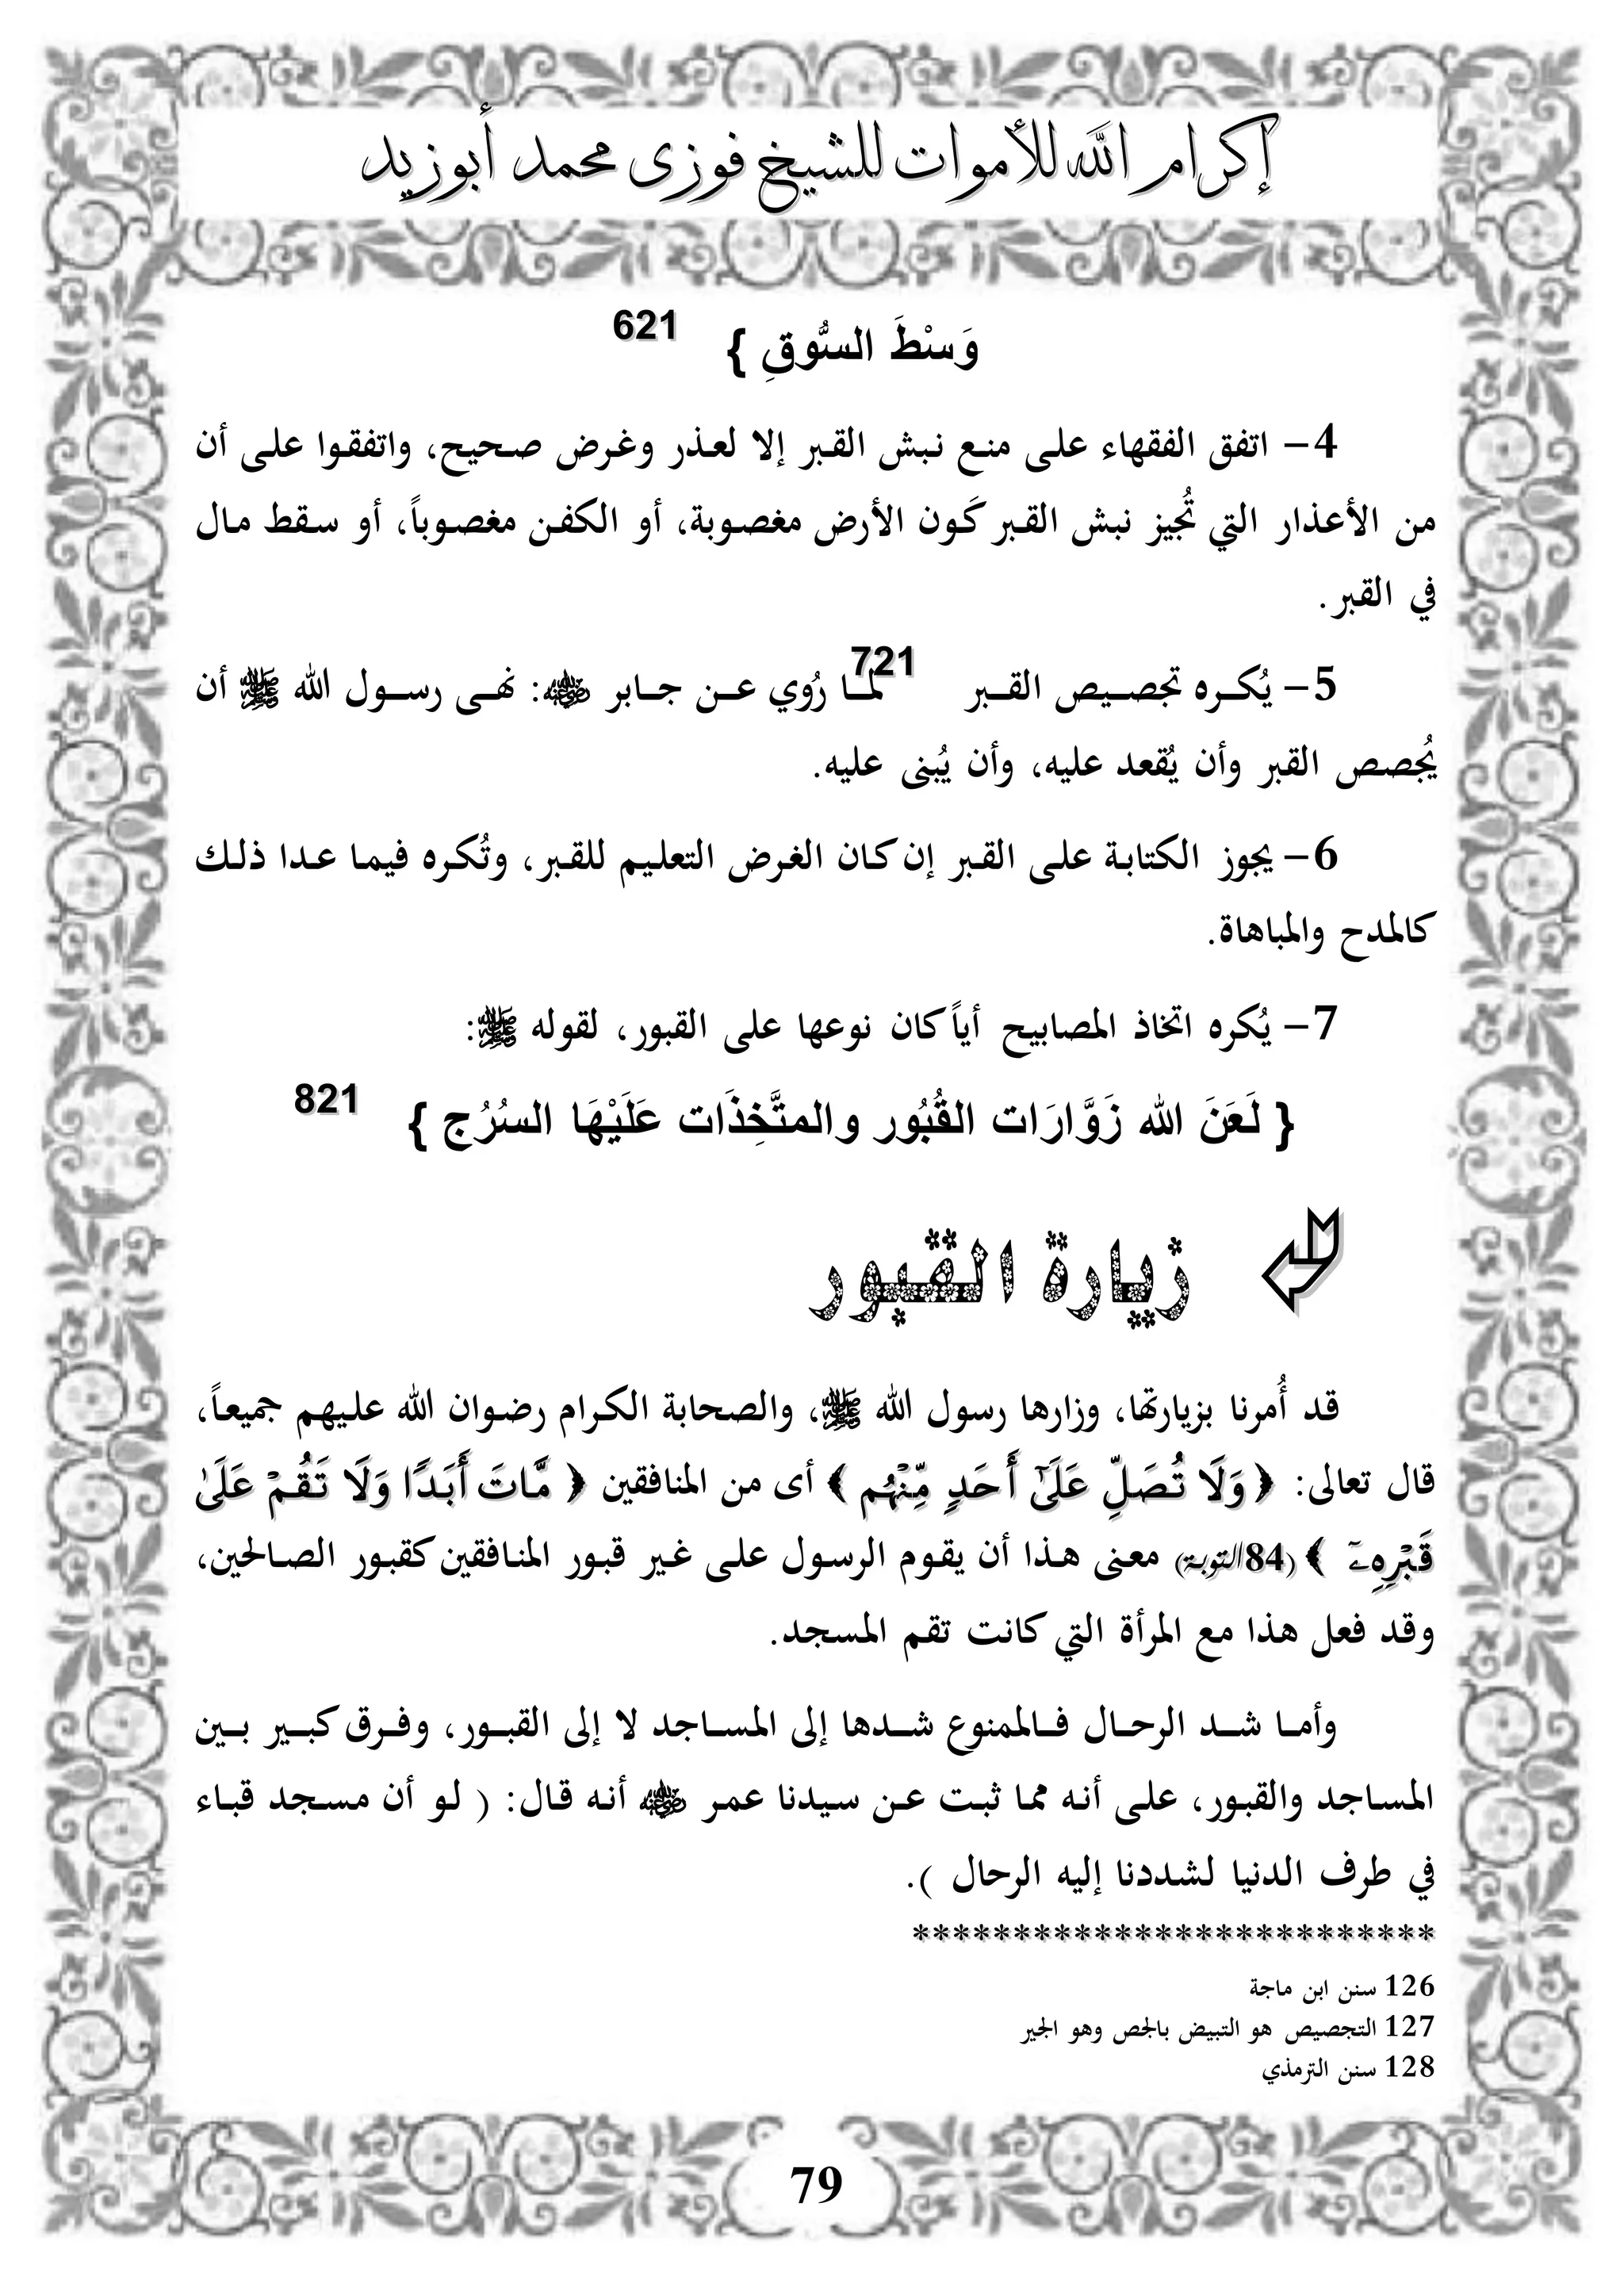 إكرام الله للأموات للشيخ فوزى محمد أبوزيد
وَسْطَ السُّوقِ } 621
4- اتفق الفقهاء على منع نبش القبر إلا لعذر وغرض صحيح، واتفقوا على أن
من الأعذار التي تُجيز نبش القبر كَون الأرض مغصوبة، أو الكفن مغصوباً، أو سقط مال
في القبر.
5- يُكره تجصيص القبر 721 لما رُوي عن جابر ﵁: نهى رسول الله ﷺ أن
يُجصص القبر وأن يُقعد عليه، وأن يُبنى عليه.
6- يجوز الكتابة على القبر إن كان الغرض التعليم للقبر، وتُكره فيما عدا ذلك
كالمدح والمباهاة.
7- يُكره اتخاذ المصابيح أياً كان نوعها على القبور، لقوله ﷺ:
{ لَعَنَ الله زَوَّارَات القُبُور والمتَّخِذَات عَلَيْهَا السُرُج } 821
زيارة القبور
قد أُمرنا بزيارتها، وزارها رسول الله ﷺ، والصحابة الكرام رضوان الله عليهم جميعاً،
قال تعالى: ﴿ وَلَا تُصَلِّ عَلَىٰٓ أَحَدٍ مِّنْهُم ﴾ أى من المنافقين ﴿ مَّاتَ أَبَدًا وَلَا تَقُمْ عَلَىٰ
قَبْرِهِۦٓ ﴾ (84التوبة) معنى هذا أن يقوم الرسول على غير قبور المنافقين كقبور الصالحين،
وقد فعل هذا مع المرأة التي كانت تقم المسجد.
وأما شد الرحال فالممنوع شدها إلى المساجد لا إلى القبور، وفرق كبير بين
المساجد والقبور، على أنه مما ثبت عن سيدنا عمر ﵁ أنه قال: ( لو أن مسجد قباء
في طرف الدنيا لشددنا إليه الرحال ).
**************************
126 سنن ابن ماجة
127 التجصيص هو التبييض بالجص وهو الجير
128 سنن الترمذي
79